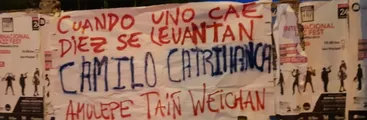 CUANDO UNO CAE
DIEZ SE LEVANTAN
CAMILO CATRIHANCA
AMULEPE TAIÑ WEICHAN
FEST